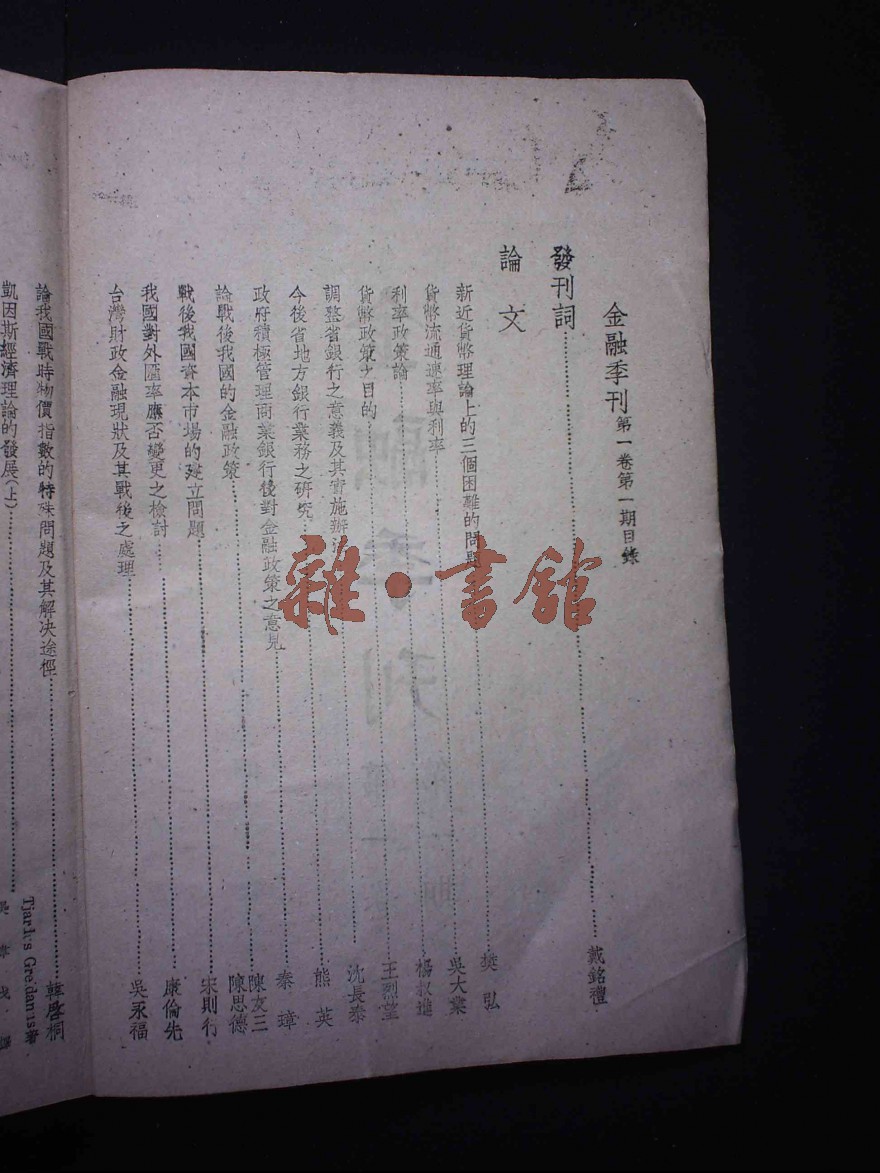 金融季刊 第一卷第一期目錄
發刊詞 戴銘禮
論文
新近貨幣理論上的三個困難的問題 樊弘
貨幣流通速率與利率 吳大業
利率政策論 楊叔進
貨幣政策之目的 王烈望
調整省銀行之意義及其實施辦法 沈長泰
今後省地方銀行業務之研究 熊英
政府積極管理商業銀行後對金融政策之意見 秦璋
論戰後我國的金融政策 陳友三 陳思德
戰後我國資本市場的建立問題 宋則行
我國對外匯率應否變更之檢討 康倫先
台灣財政金融現狀及其戰後之處理 吳永福
論我國戰時物價指數的特殊問題及其解決途徑 韓啓桐
凱因斯經濟理論的發展(上) Gredanis著
雜·書館